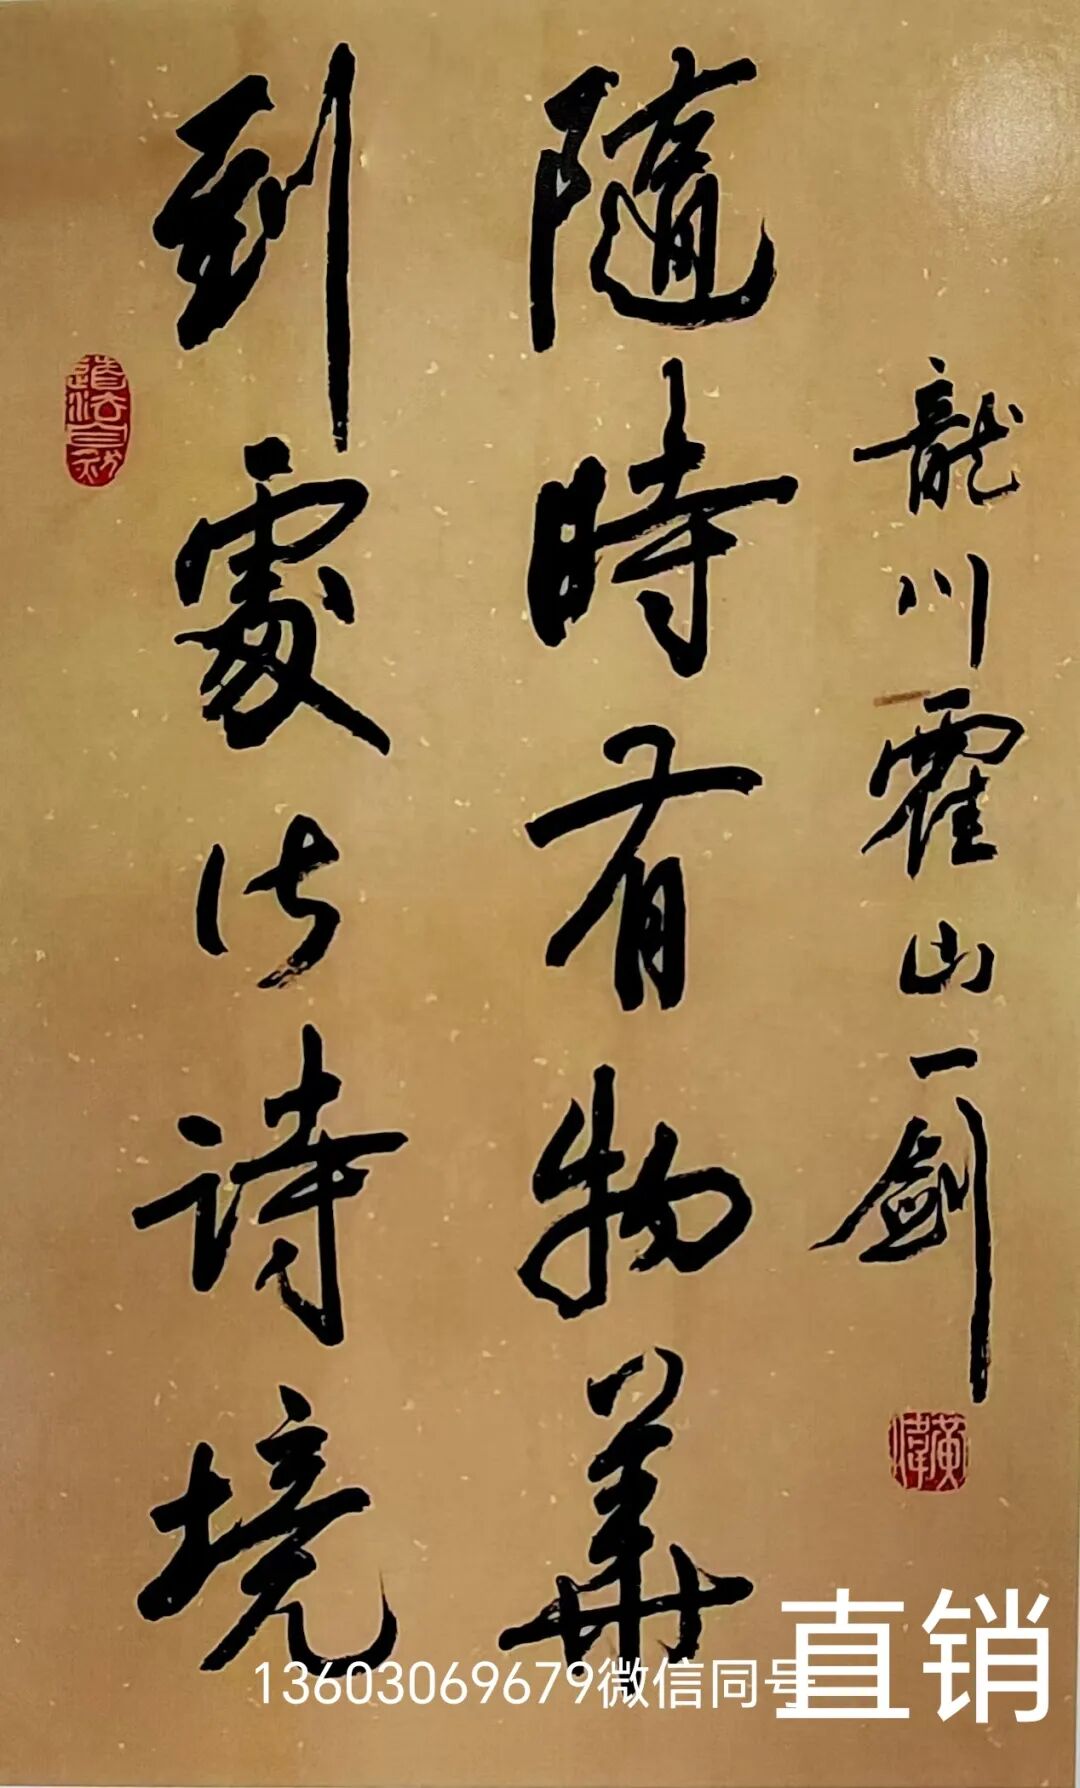 道法自然
到處皆詩境
隨時有物華
龍川霍山一劍
黄偉
13603069679微信同号
直销